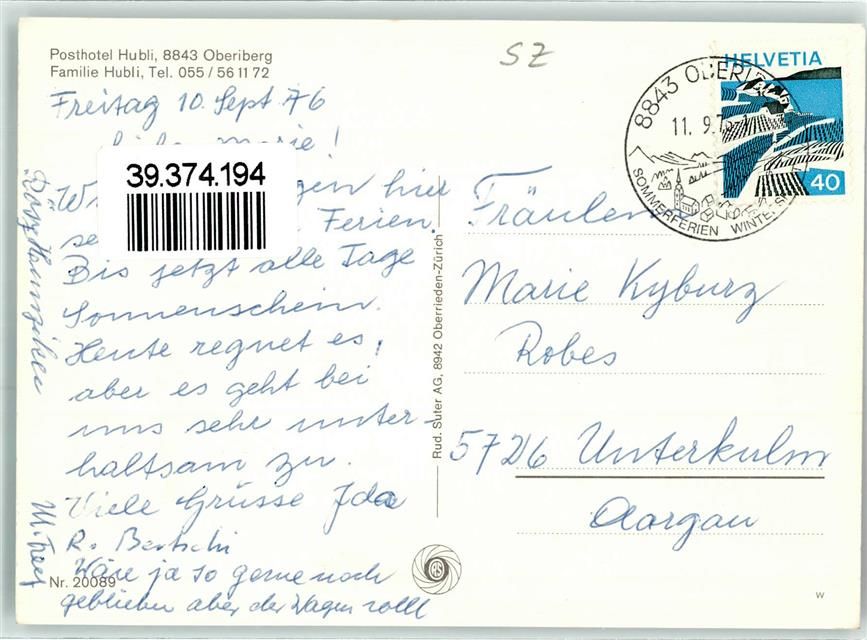 Posthotel Hubli, 8843 Oberiberg
Familie Hubli, Tel. 055 / 56 11 72
SZ
Freitag 10. Sept 76
Marie!
39.374.194
gen hier
Ferien.
Bis jetzt alle Tage
Sonnenschein.
Heute regnet es,
aber es geht bei
uns sehr unter-
haltsam zu.
Viele Grüsse Ida
R. Bertschi
Wäre ja so gerne noch
geblieben aber der Wagen rollt
Rösy Hunziker
M. Frey
Nr. 20089
Rud. Suter AG, 8942 Oberrieden-Zürich
RS
HELVETIA
40
8843 OBERI
11. 9. 7
SOMMERFERIEN WINTERS
Fräulein
Marie Kyburz
Robes
5726 Unterkulm
Aargau
W